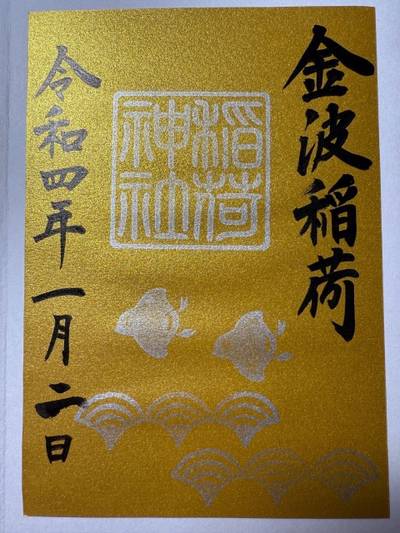 金波稲荷
稲荷
神社
令和四年一月二日